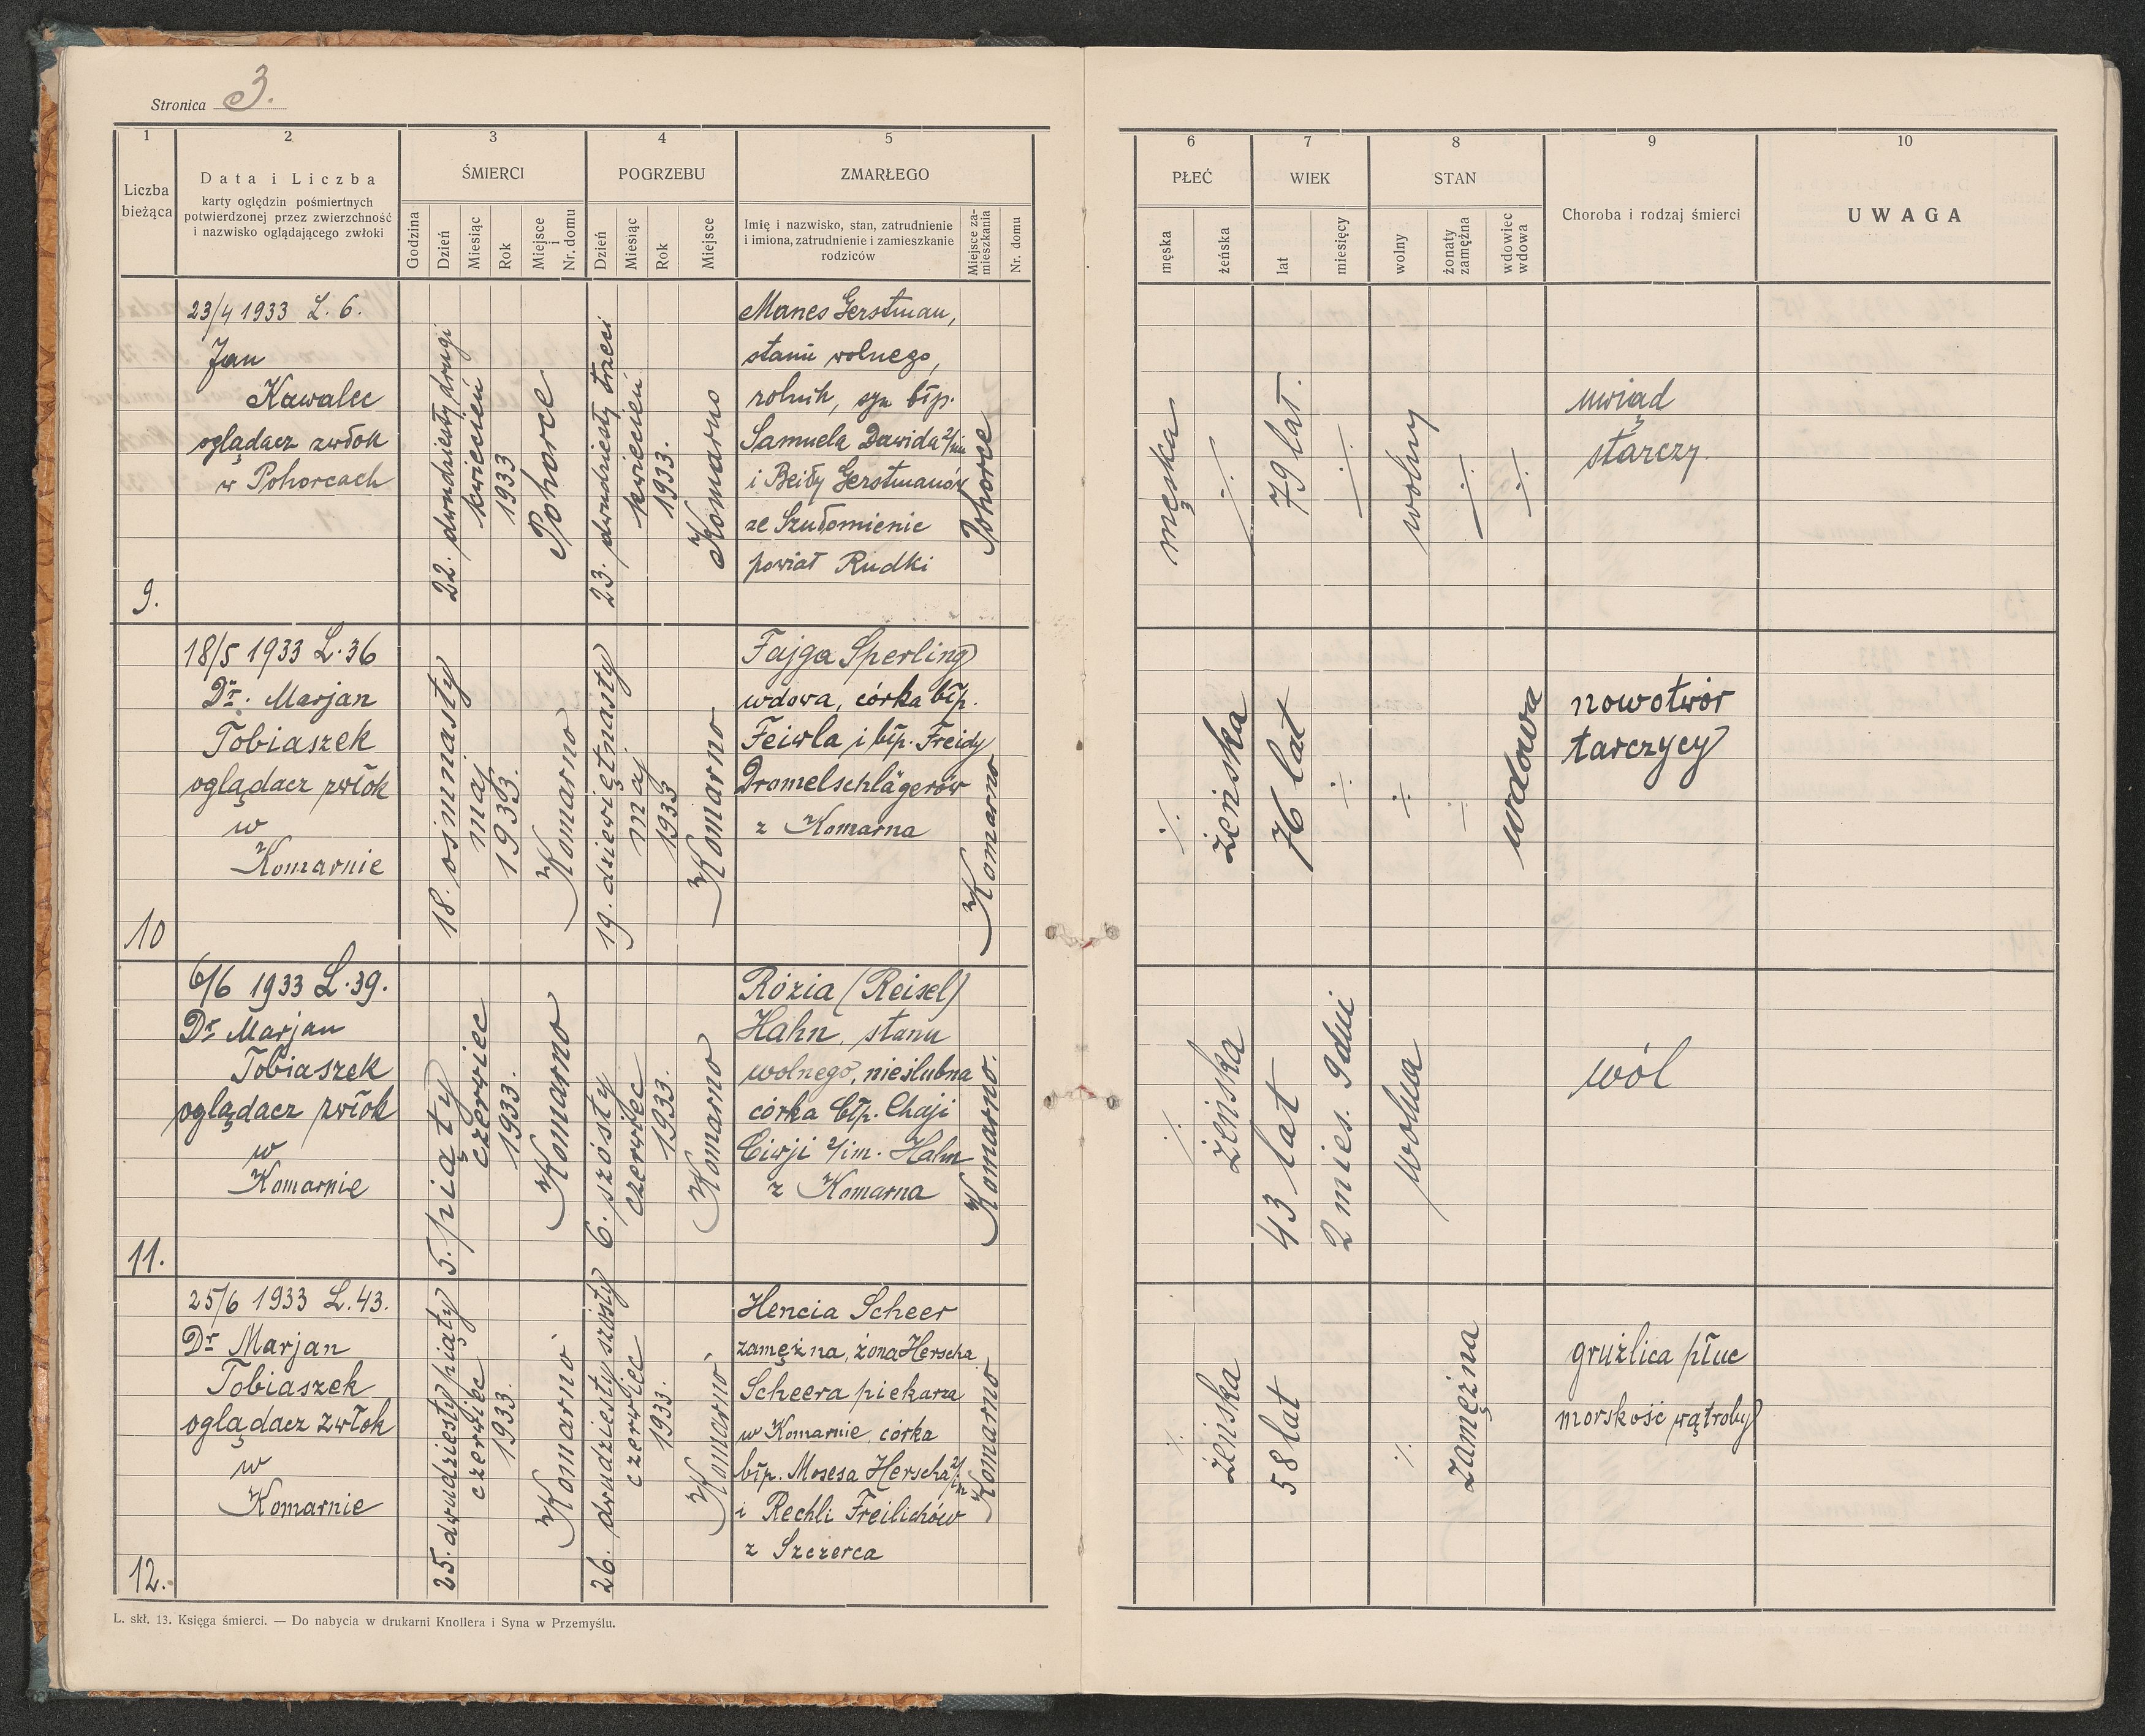 Stronica 3.
1 2 3 4 5
Liczba bieżąca
Data i Liczba
karty oględzin pośmiertnych
potwierdzonej przez zwierzchność
i nazwisko oglądającego zwłoki
ŚMIERCI
Godzina
Dzień
Miesiąc
Rok
Miejsce i Nr. domu
POGRZEBU
Dzień
Miesiąc
Rok
Miejsce
ZMARŁEGO
Imię i nazwisko, stan, zatrudnienie
i imiona, zatrudnienie i zamieszkanie
rodziców
Miejsce zamieszkania
Nr. domu
6 7 8 9 10
PŁEĆ
męska
żeńska
WIEK
lat
miesięcy
STAN
wolny
żonaty zamężna
wdowiec wdowa
Choroba i rodzaj śmierci
UWAGA
9.
23/4 1933 L. 6.
Jan
Kawalec
oglądacz zwłok
w Pohorcach
22. dwudziesty drugi
kwiecień
1933
Pohorce
23. dwudziesty trzeci
kwiecień
1933.
Komarno
Manes Gerstman,
stanu wolnego,
rolnik, syn błp.
Samuela Dawida 2/im
i Beiły Gerstmanów
ze Szułomienie
powiat Rudki
Pohorce
męska
÷
79 lat.
÷
wolny
÷
÷
uwiąd
starczy.
10
18/5 1933 L. 36
Dr. Marjan
Tobiaszek
oglądacz zwłok
w
Komarnie
18. osimnasty
maj
1933.
Komarno
19. dziewiętnasty
maj
1933
Komarno
Fajga Sperling
wdowa, córka błp.
Feiwla i błp. Freidy
Dromelschlägerów
z Komarna
Komarno
÷
żeńska
76 lat
÷
÷
÷
wdowa
nowotwór
tarczycy
11.
6/6 1933 L. 39.
Dr Marjan
Tobiaszek
oglądacz zwłok
w
Komarnie
5. piąty
czerwiec
1933.
Komarno
6. szósty
czerwiec
1933.
Komarno
Rózia (Reisel)
Hahn, stanu
wolnego, nieślubna
córka błp. Chaji
Ciwji 2/im. Hahn
z Komarna
Komarno.
÷
żeńska
43 lat
2 mies. 9 dni
wolna
wól
12.
25/6 1933 L. 43.
Dr Marjan
Tobiaszek
oglądacz zwłok
w
Komarnie
25. dwudziesty piąty
czerwiec
1933.
Komarno
26. dwudziesty szósty
czerwiec
1933.
Komarno
Hencia Scheer
zamężna, żona Herscha
Scheera piekarza
w Komarnie, córka
błp. Mosesa Herscha 2/im
i Rechli Freilichów
z Szczerca
Komarno
÷
żeńska
58 lat
÷
zamężna
gruźlica płuc
morskość wątroby
L. skł. 13. Księga śmierci. — Do nabycia w drukarni Knollera i Syna w Przemyślu.